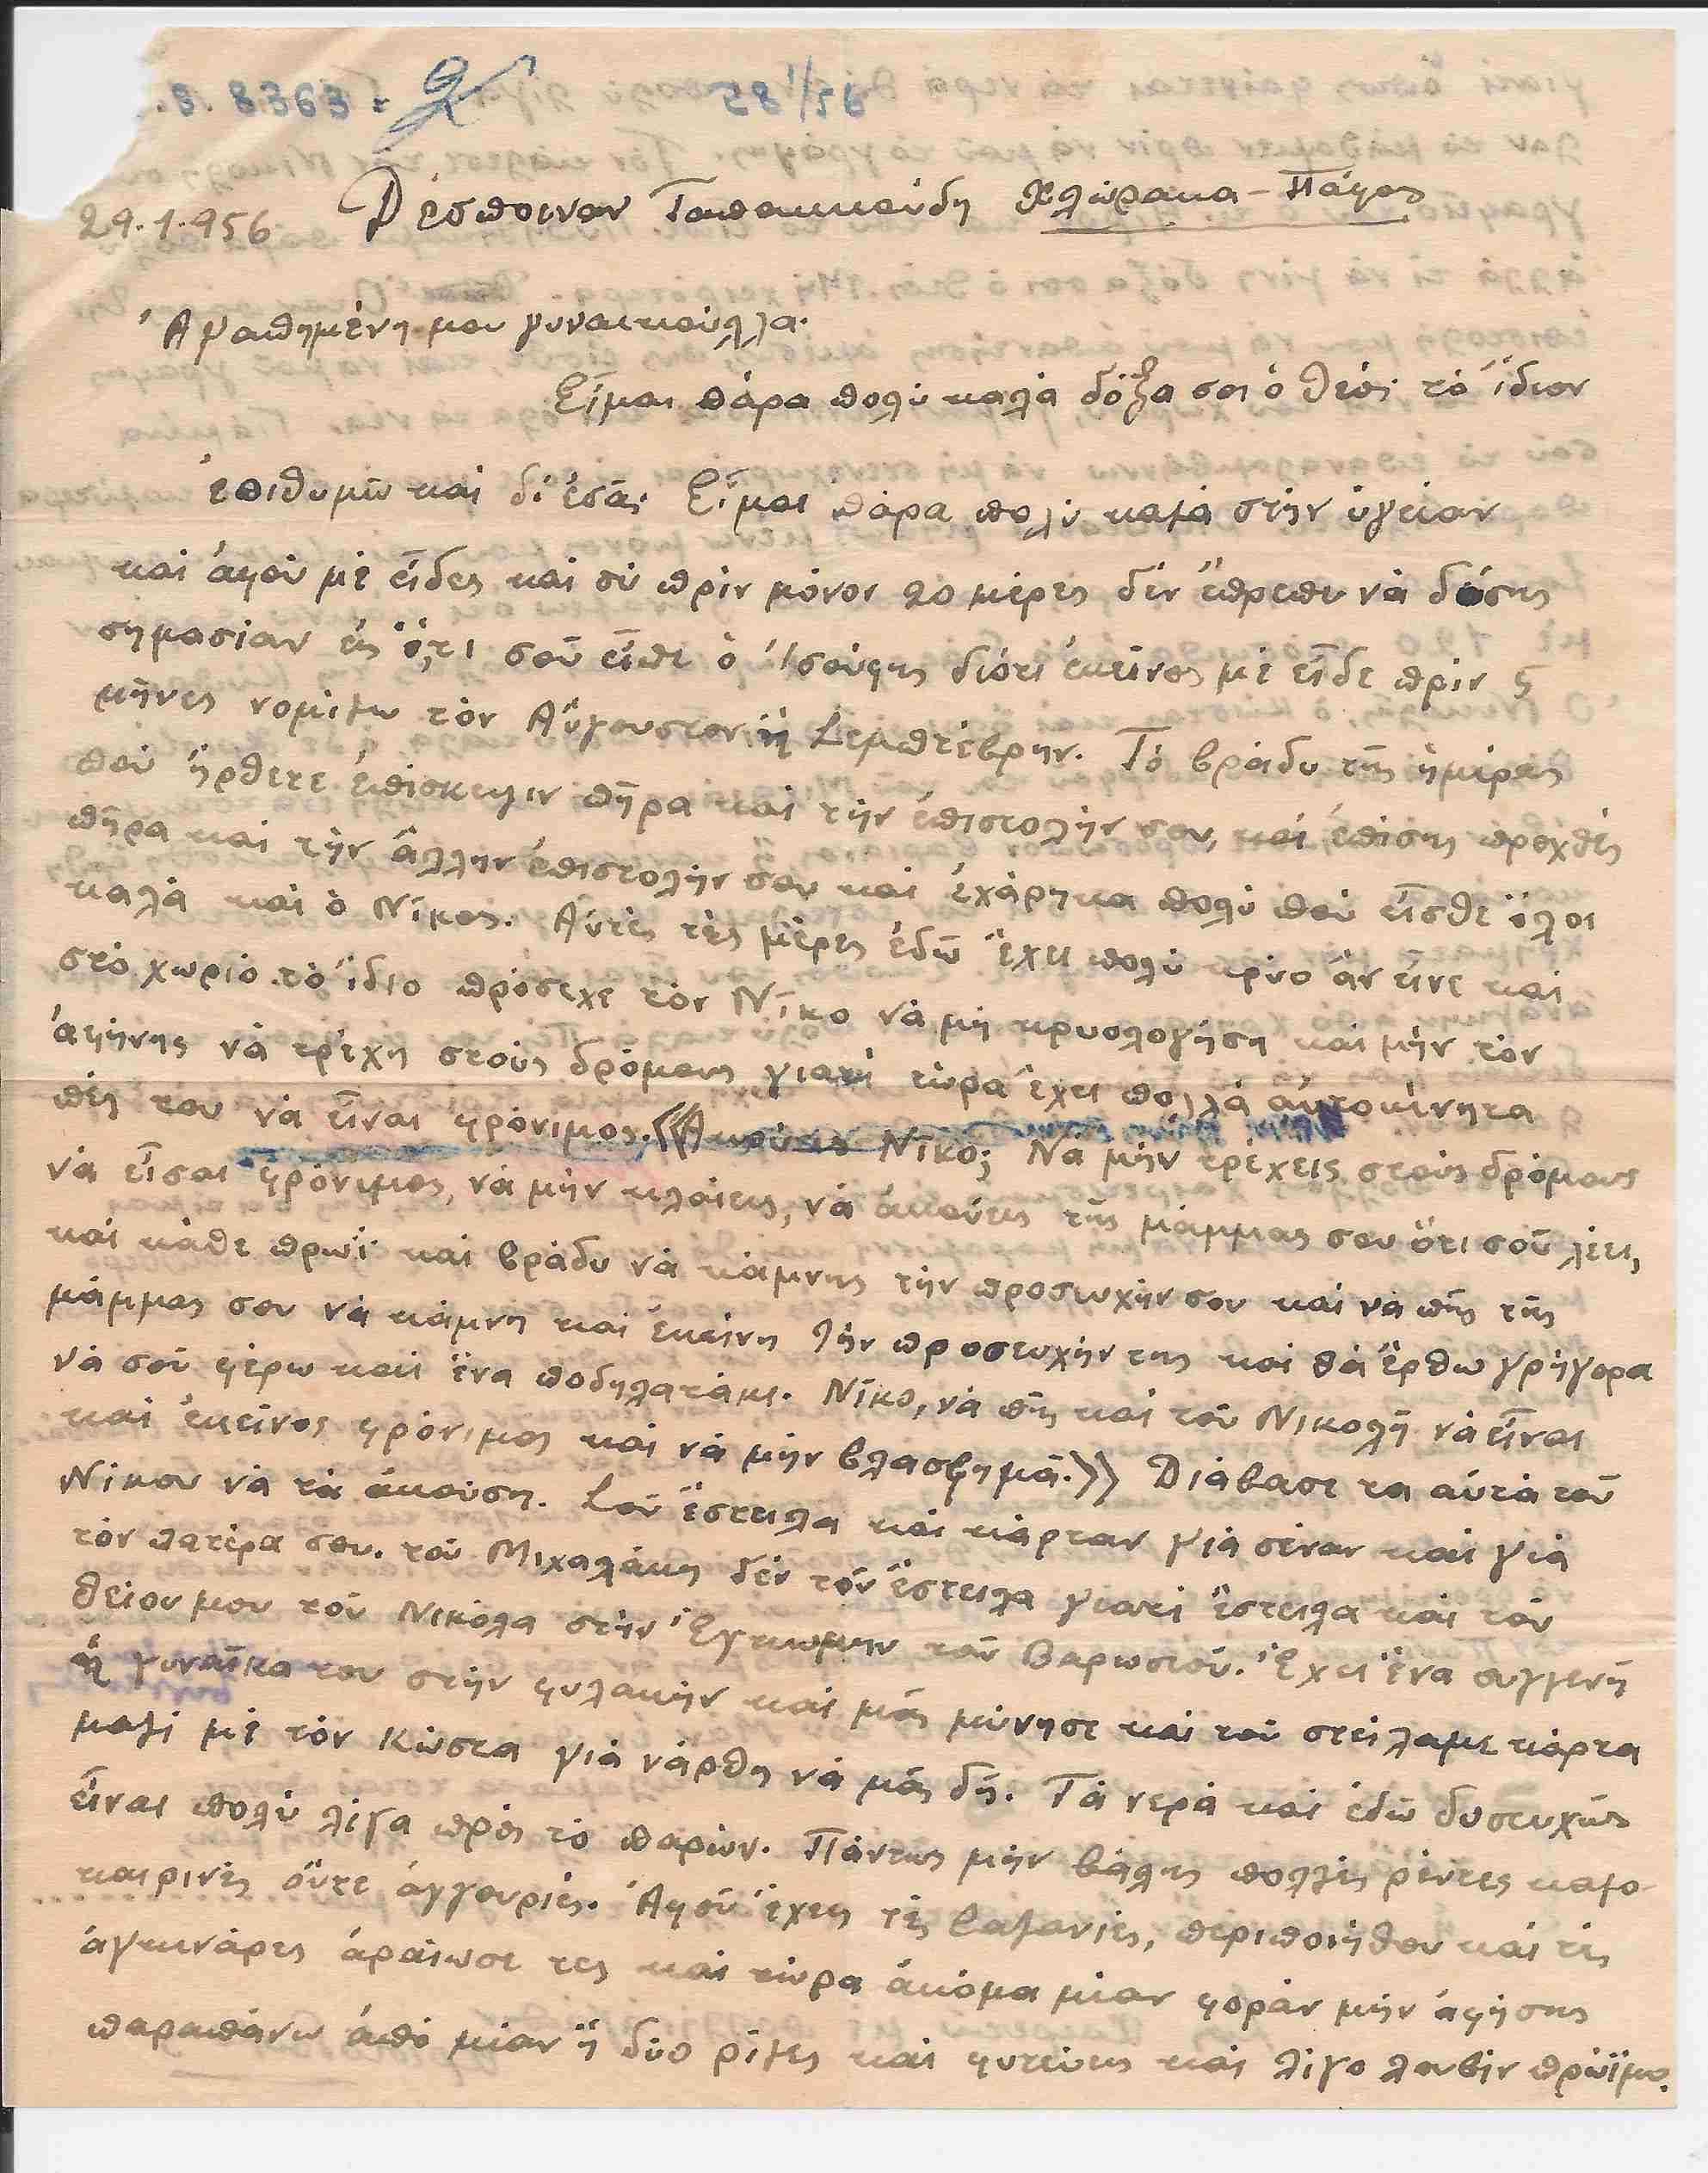 .8.8363 : 2 58/56
29.1.956 Δέσποιναν Ταπακκούδη Χλώρακα - Πάφος
Ἀγαπημένη μου γυναικούλλα.
Εἶμαι πάρα πολύ καλά δόξα σοι ὁ Θεός τό ἴδιον
ἐπιθυμῶ καί δι' ἐσᾶς. Εἶμαι πάρα πολύ καλά στήν ὑγείαν
καί ἀφοῦ μέ εἶδες καί σύ πρίν μόνον 20 μέρες δέν ἔπρεπε νά δώσης
σημασίαν εἰς ὅ,τι σοῦ εἶπε ὁ Ἰσούφης διότι ἐκεῖνος μέ εἶδε πρίν 5
μῆνες νομίζω τόν Αὔγουστον ἤ Σεμπτέβρην. Τό βράδυ τῆς ἡμέρας
πού ἤρθετε ἐπίσκεψιν πῆρα καί τήν ἐπιστολήν σου, καί ἐπίσης προχθές
πῆρα καί τήν ἄλλην ἐπιστολήν σου καί ἐχάρηκα πολύ πού εἶσθε ὅλοι
καλά καί ὁ Νίκος. Αὐτές τές μέρες ἐδῶ ἔχει πολύ κρύο ἄν εἶνε καί
στό χωριό τό ἴδιο πρόσεχε τόν Νῖκο νά μή κρυολογήση καί μήν τόν
ἀφήνης νά τρέχη στούς δρόμους γιατί τώρα ἔχει πολλά αὐτοκίνητα
πές του νά εἶναι φρόνιμος. «Ἀκούεις Νῖκο; Νά μήν τρέχεις στούς δρόμους
νά εἶσαι φρόνιμος, νά μήν κλαίεις, νά ἀκούεις τῆς μάμμας σου ὅτι σοῦ λέει,
καί κάθε πρωΐ καί βράδυ νά κάμνης τήν προσευχήν σου καί νά πῆς τῆς
μάμμας σου νά κάμνη καί ἐκείνη τήν προσευχήν της καί θά ἔρθω γρήγορα
νά σοῦ φέρω καί ἕνα ποδηλατάκι. Νῖκο, νά πῆς καί τοῦ Νικολῆ νά εἶναι
καί ἐκεῖνος φρόνιμος καί νά μήν βλασφημᾶ.» Διάβασε τα αὐτά τοῦ
Νίκου νά τά ἀκούση. Σοῦ ἔστειλα καί κάρταν γιά σέναν καί γιά
τόν πατέρα σου. τοῦ Μιχαλάκη δέν τοῦ ἔστειλα γιατί ἔστειλα καί τοῦ
θείου μου τοῦ Νικόλα στήν Ἔγκωμην τοῦ Βαρωσιοῦ. Ἔχει ἕνα συγγενῆ
ἡ γυναῖκα του στήν φυλακήν καί μᾶς μύνησε καί τοῦ στείλαμε κάρτα
μαζί μέ τόν Κώστα γιά νάρθη νά μᾶς δῆ. Τά νερά καί ἐδῶ δυστυχῶς
εἶναι πολύ λίγα πρός τό παρών. Πάντως μήν βάλης πολλές ρέντες καλο-
καιρινές οὔτε ἀγγουριές. Ἀφοῦ ἔχεις τές βαζανιές, περιποιήθου καί τές
ἀγκινάρες ἀραίωσε τες καί τώρα ἀκόμα μίαν φοράν μήν ἀφήσης
παραπάνω ἀπό μίαν ἤ δύο ρίζες καί φυτεύεις καί λίγο λουβίν πρώϊμο.